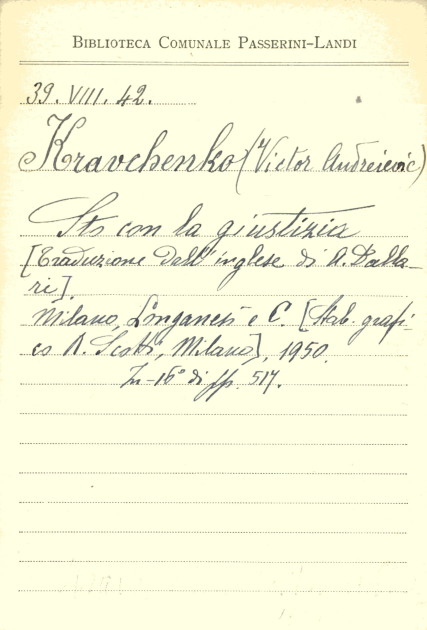 BIBLIOTECA COMUNALE PASSERINI-LANDI
39. VIII. 42.
Kravchenko (Victor Andreievic)
Sto con la giustizia
[Traduzione dall'inglese di A. Dalla-
ri].
Milano, Longanesi e C. [Stab. grafi-
co A. Scotti, Milano], 1950.
In-16° di pp. 517.